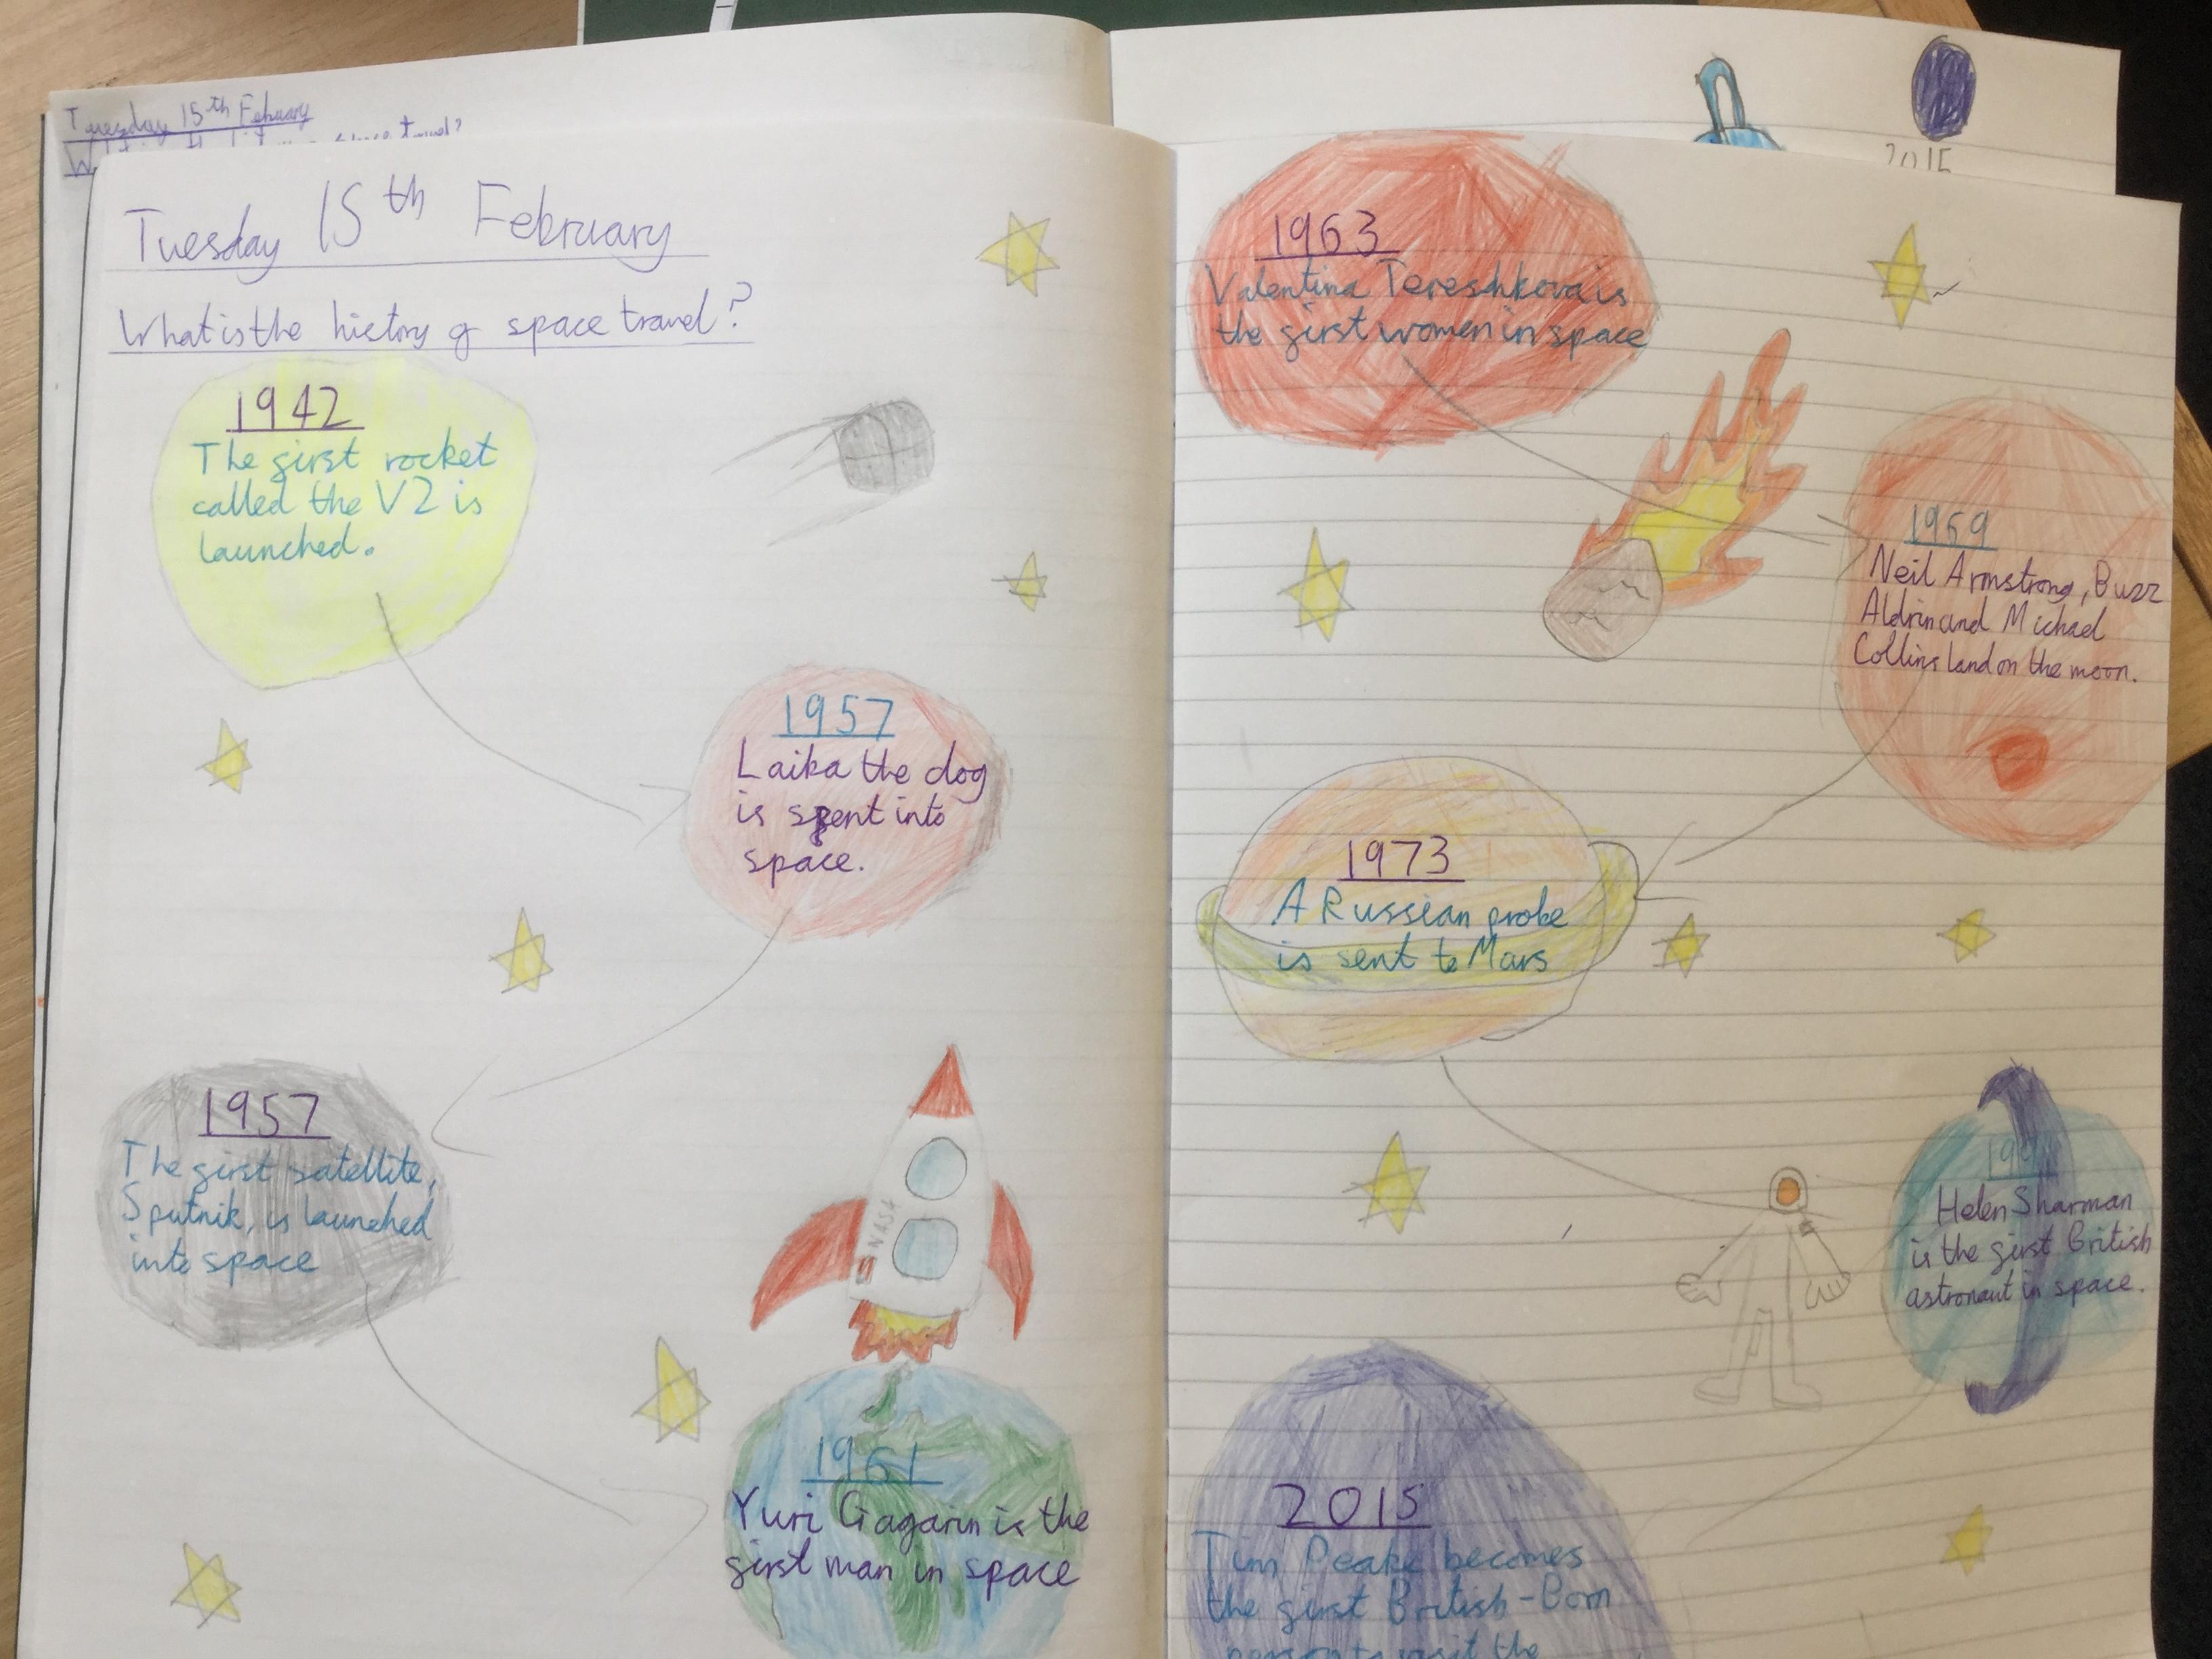 Tuesday 15th February
Tuesday 15th February
What is the history of space travel?
1942
The first rocket
called the V2 is
launched.
1957
Laika the dog
is sent into
space.
1957
The first satellite,
Sputnik, is launched
into space
NASA
1961
Yuri Gagarin is the
first man in space
2015
1963
Valentina Tereshkova is
the first women in space
1969
Neil Armstrong, Buzz
Aldrin and Michael
Collins land on the moon.
1973
A Russian probe
is sent to Mars
Helen Sharman
is the first British
astronaut in space.
2015
Tim Peake becomes
the first British-Born
person to visit the